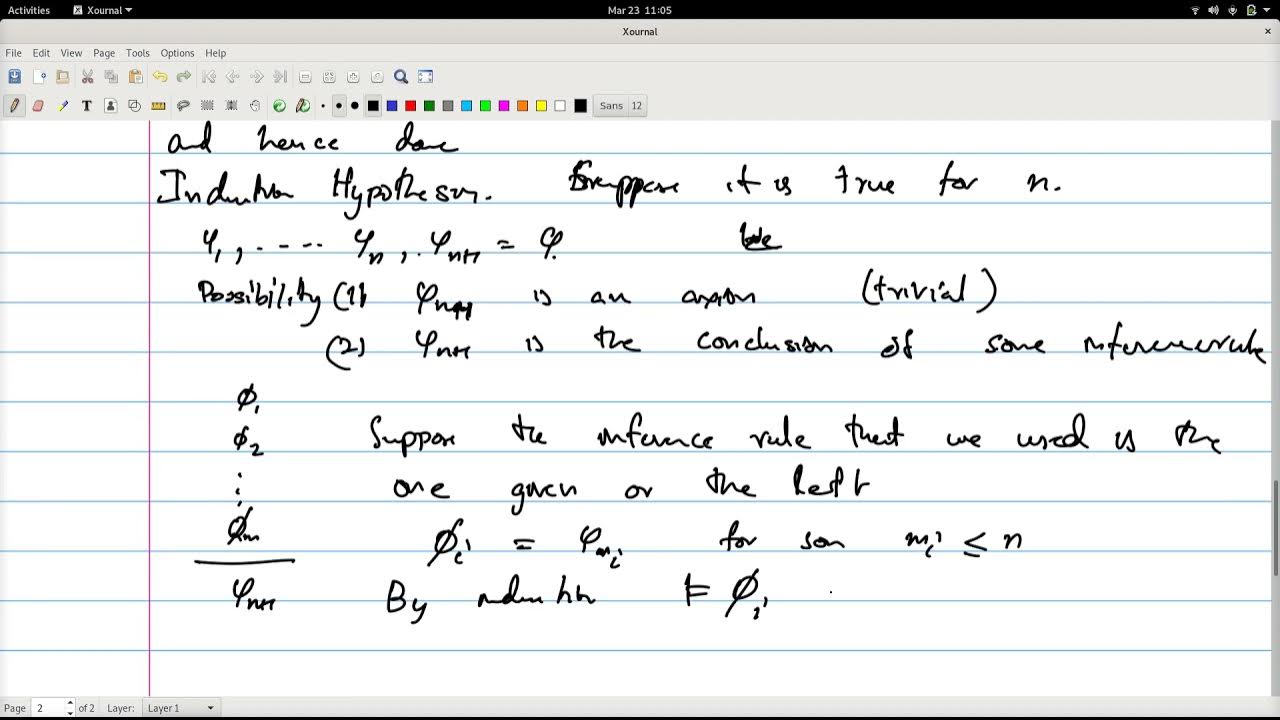 Activities Xournal Mar 23 11:05
Xournal
File Edit View Page Tools Options Help
T Sans 12
and hence done
Induction Hypothesis. Suppose it is true for n.
φ₁, ..... φₙ, φₙ₊₁ = φ. be
Possibility (1) φₙ₊₁ is an axiom (trivial)
(2) φₙ₊₁ is the conclusion of some inference rule
ϕ₁
ϕ₂ Suppose the inference rule that we used is the
⋮ one given on the left
ϕₘ ϕᵢ = φₘᵢ for som mᵢ ≤ n
φₙ₊₁ By induction ⊨ ϕᵢ
Page 2 of 2 Layer: Layer 1